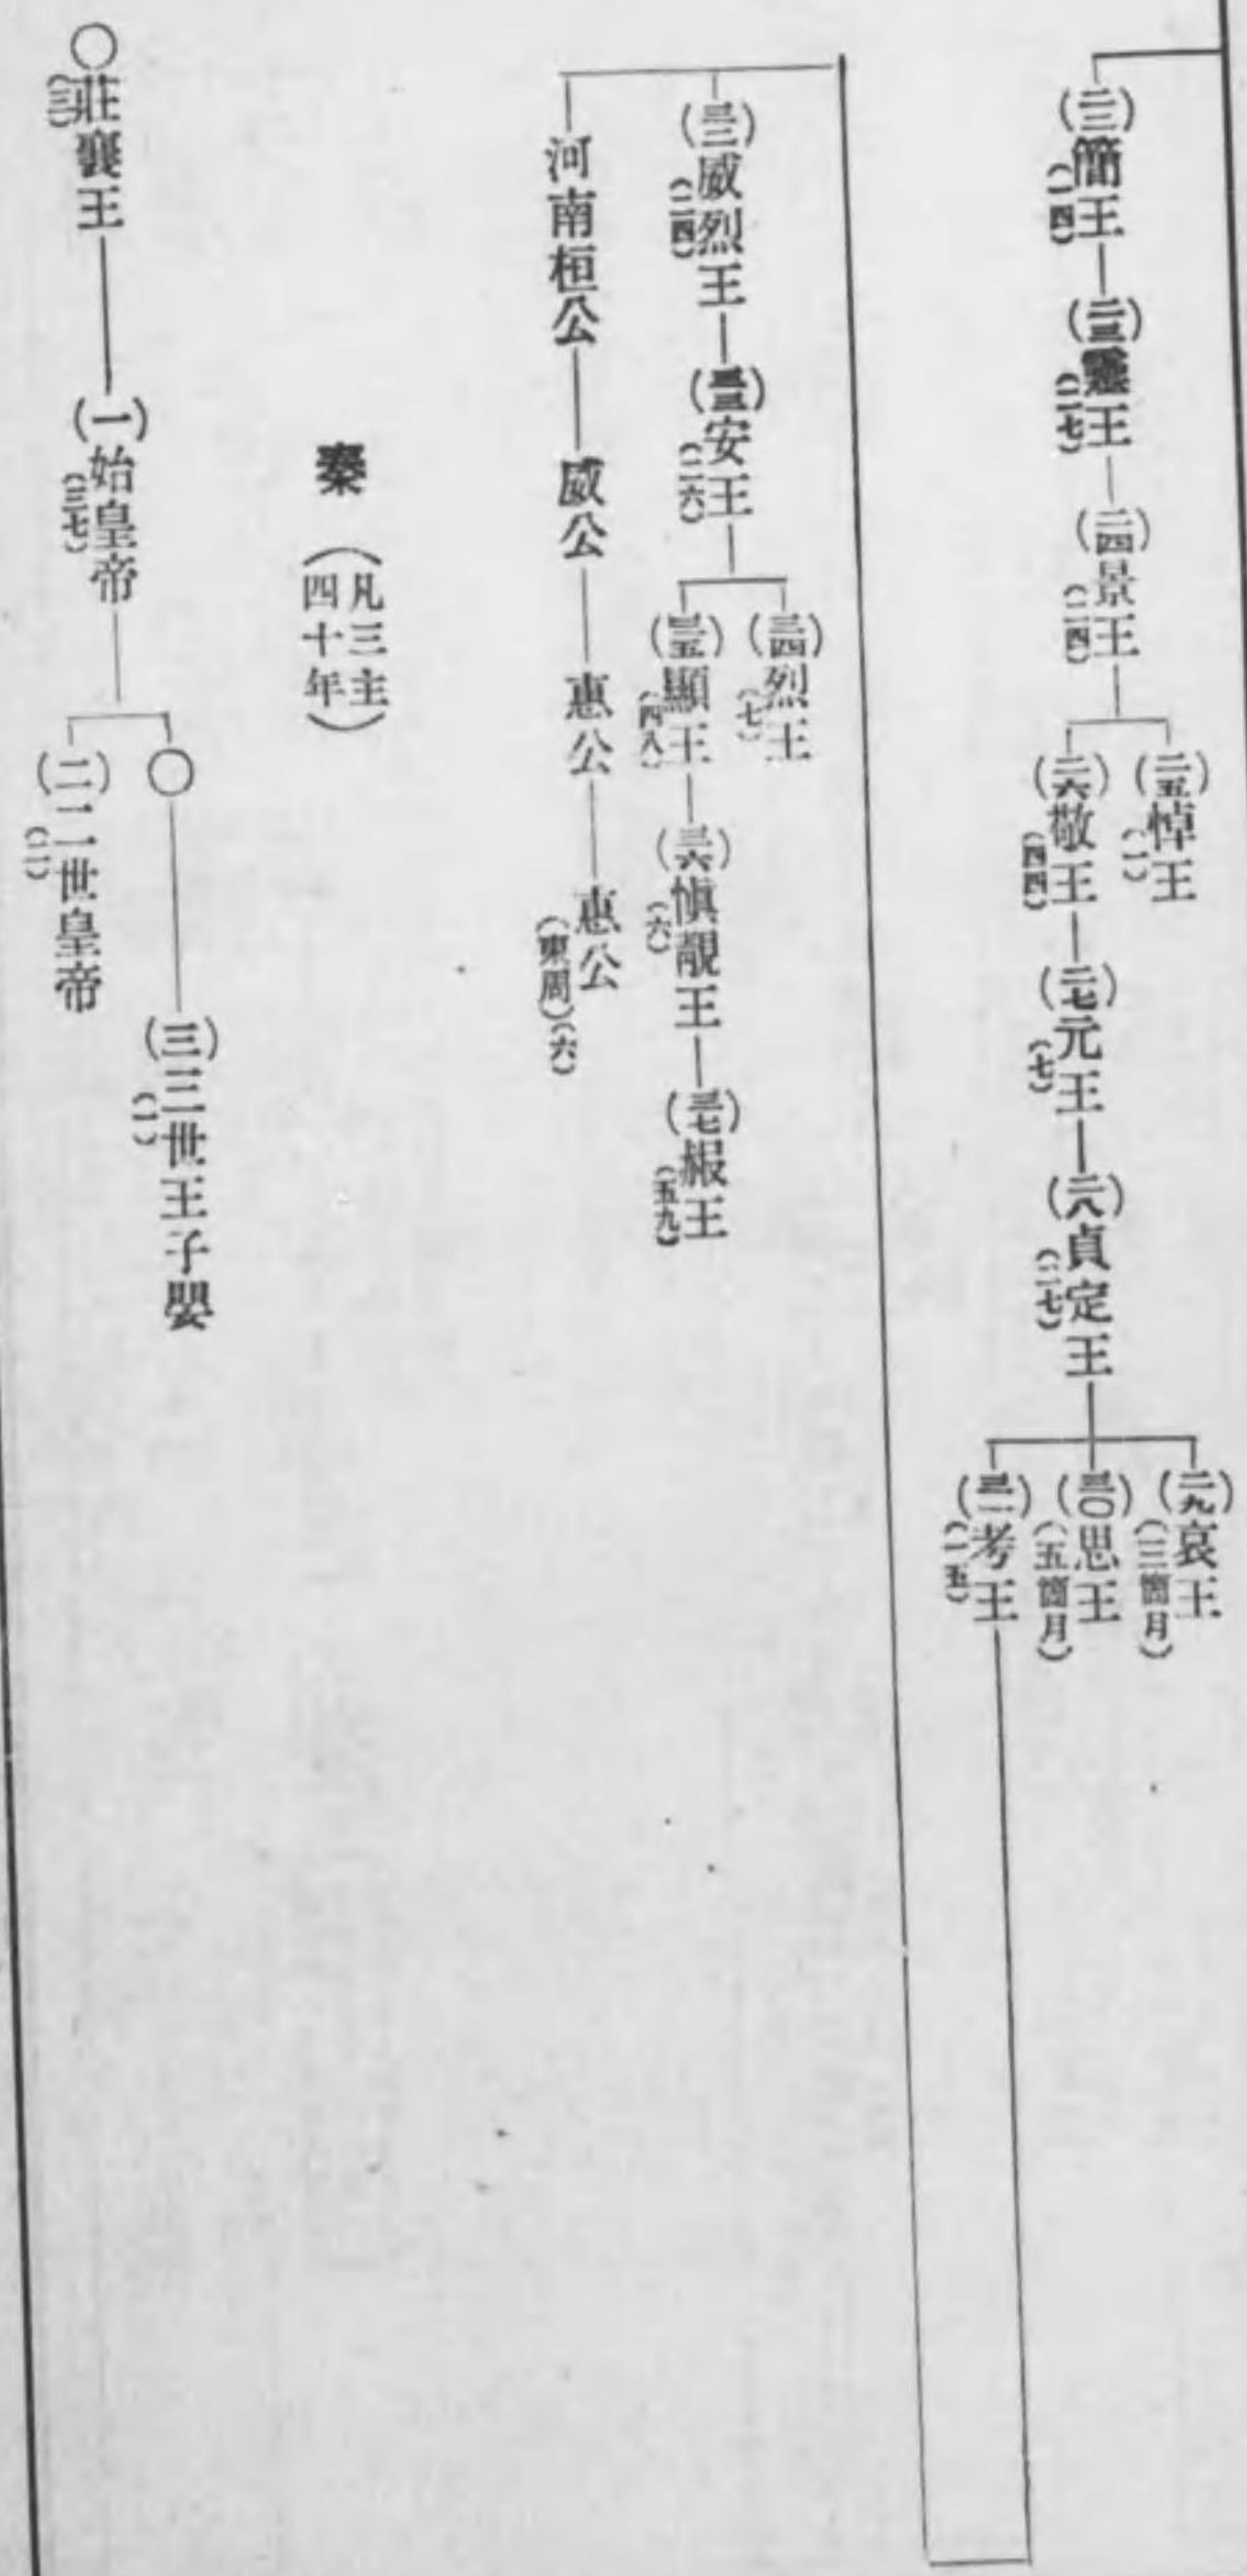 (二二)簡王(一四)
(二三)靈王(二七)
(二四)景王(二四)
(二五)悼王(一)
(二六)敬王(四四)
(二七)元王(七)
(二八)貞定王(二七)
(二九)哀王(三箇月)
(三〇)思王(五箇月)
(三一)考王(一五)
(三二)威烈王(二四)
(三三)安王(二六)
(三四)烈王(七)
(三五)顯王(四八)
(三六)愼靚王(六)
(三七)赧王(五九)
河南桓公
威公
惠公
惠公(東周)(六)
秦(凡三主四十年)
〇莊襄王(三)
(一)始皇帝(三七)
〇
(三)三世王子嬰(一)
(二)二世皇帝(二)